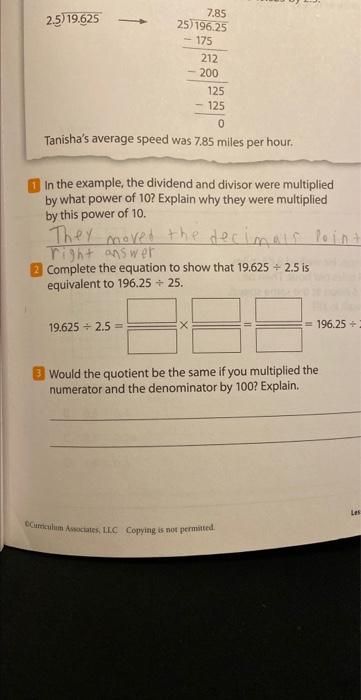 7.85
2.5)19.625 → 25)196.25
− 175
212
− 200
125
− 125
0
Tanisha's average speed was 7.85 miles per hour.
1 In the example, the dividend and divisor were multiplied
by what power of 10? Explain why they were multiplied
by this power of 10.
They moved the decimals Point
right answer
2 Complete the equation to show that 19.625 ÷ 2.5 is
equivalent to 196.25 ÷ 25.
19.625 ÷ 2.5 = × = = 196.25 ÷
3 Would the quotient be the same if you multiplied the
numerator and the denominator by 100? Explain.
Les
©Curriculum Associates, LLC Copying is not permitted.